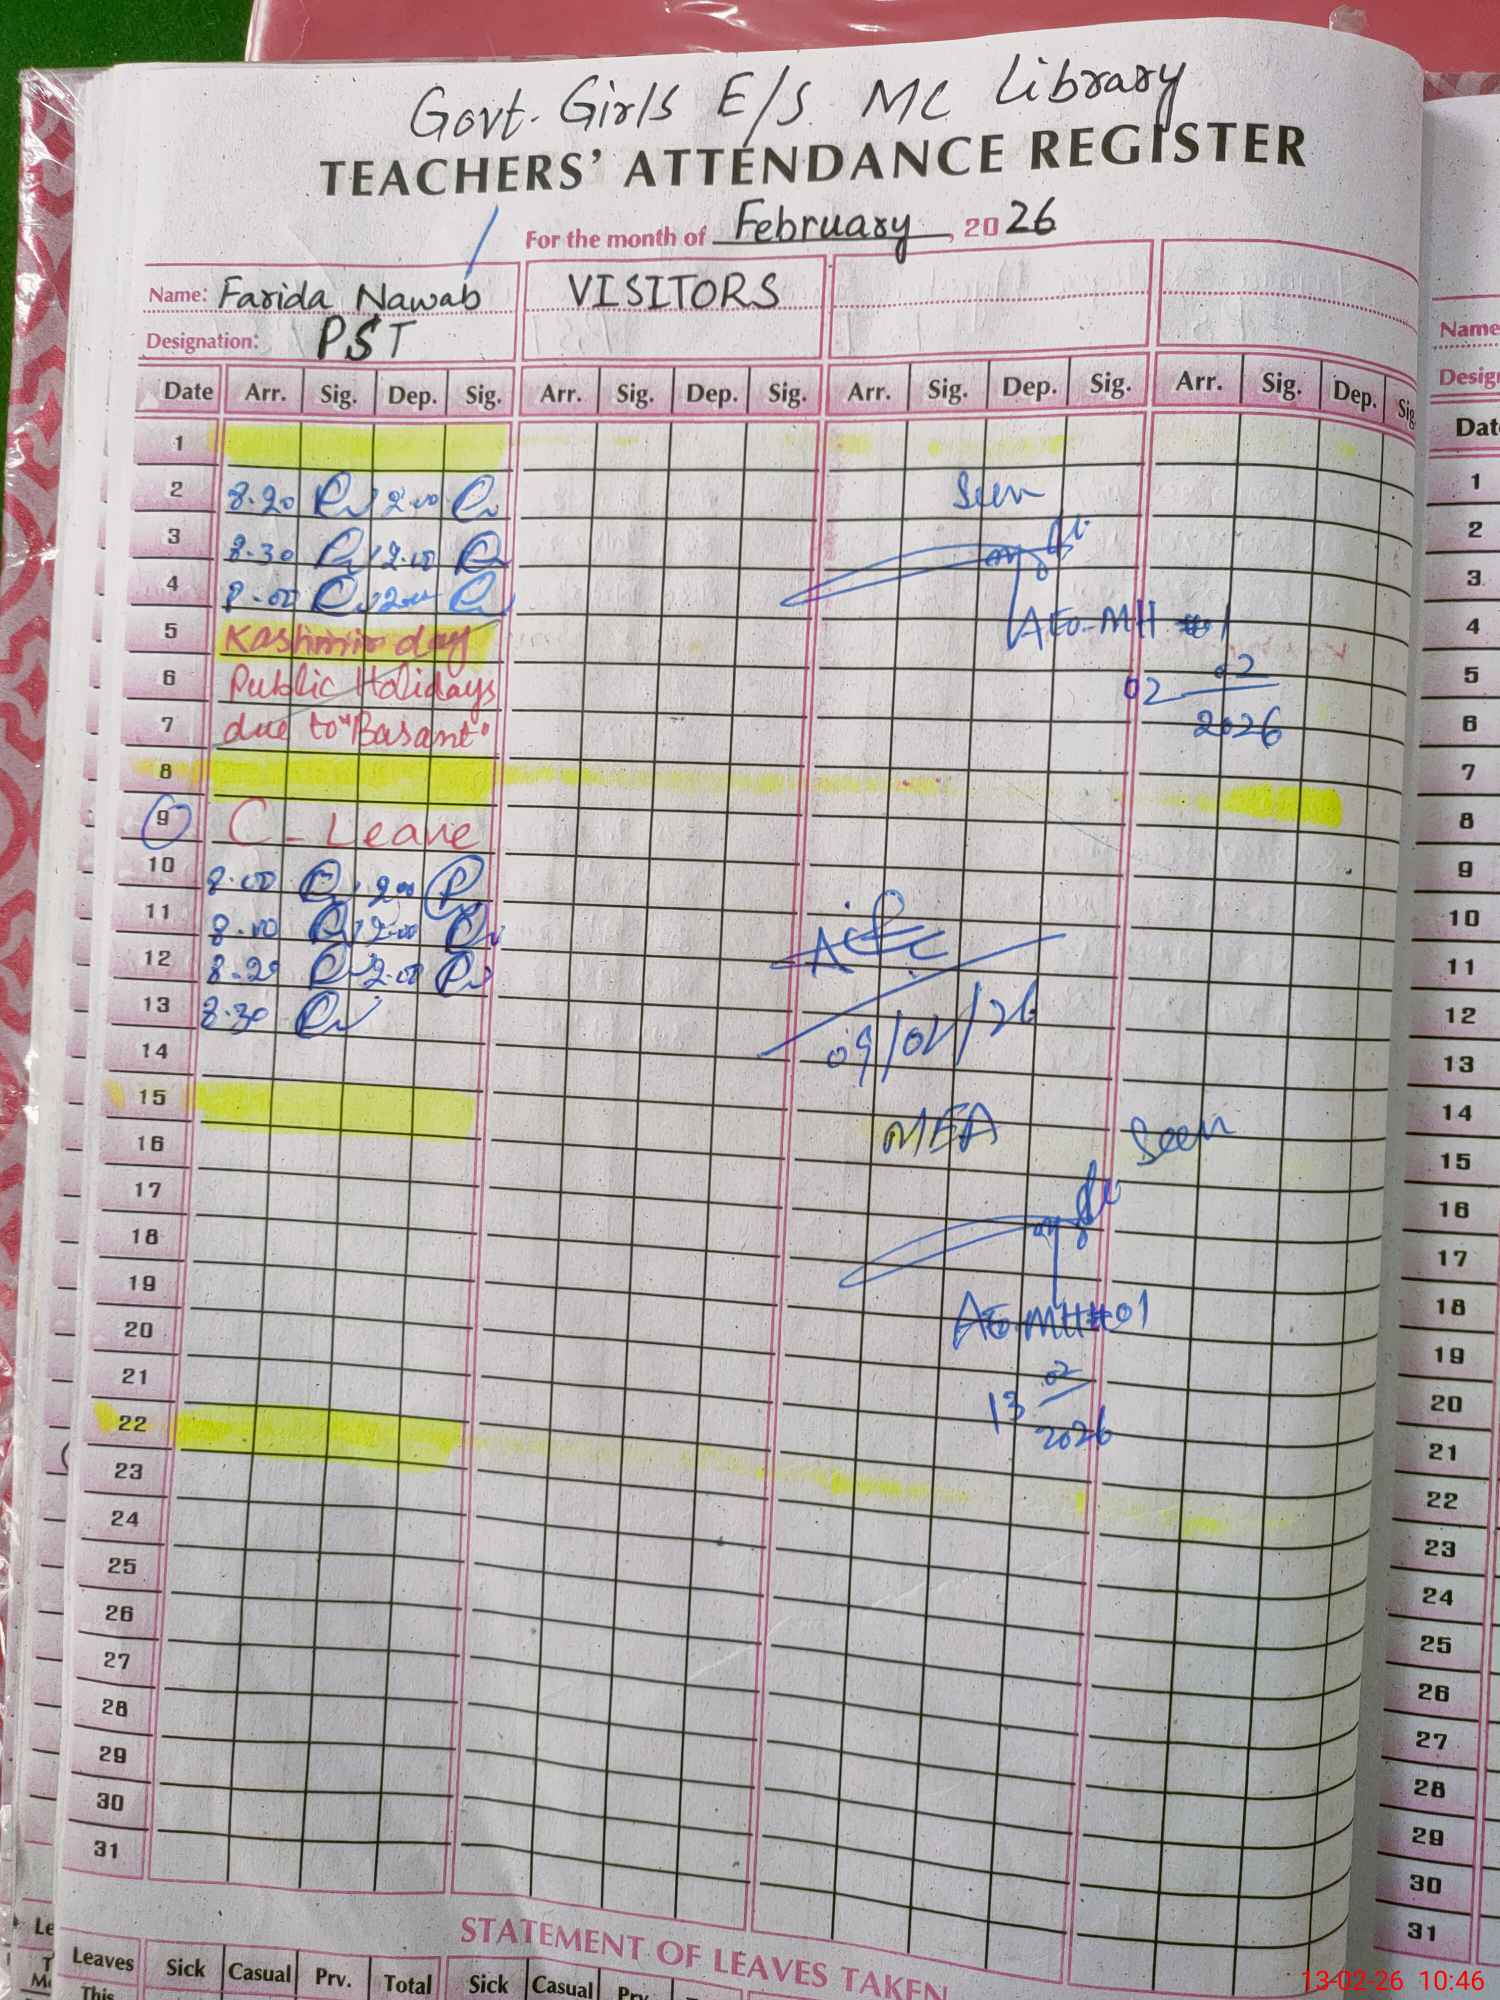 Govt. Girls E/S MC Library
TEACHERS' ATTENDANCE REGISTER
For the month of February, 2026
Name: Farida Nawab VISITORS
Designation: PST
Date Arr. Sig. Dep. Sig. Arr. Sig. Dep. Sig. Arr. Sig. Dep. Sig. Arr. Sig. Dep. Sig.
1
2 8.20 12.00 Seen
3 8.30 12.00
4 8.00 12.00 AEO-MH #01
5 Kashmir day
6 Public Holidays 02 02 2026
7 due to "Basant"
8
9 C-Leave
10 8.00 12.00
11 8.00 12.00
12 8.20 12.00
13 8.30
14 09/02/26
15
16 MEA Seen
17
18
19
20 AEO-MH#01
21
22 13 02 2026
23
24
25
26
27
28
29
30
31
STATEMENT OF LEAVES TAKEN
Leaves Sick Casual Prv. Total Sick Casual Prv.
This
Name
Desig
Dat
1
2
3
4
5
6
7
8
9
10
11
12
13
14
15
16
17
18
19
20
21
22
23
24
25
26
27
28
29
30
31
13-02-26 10:46